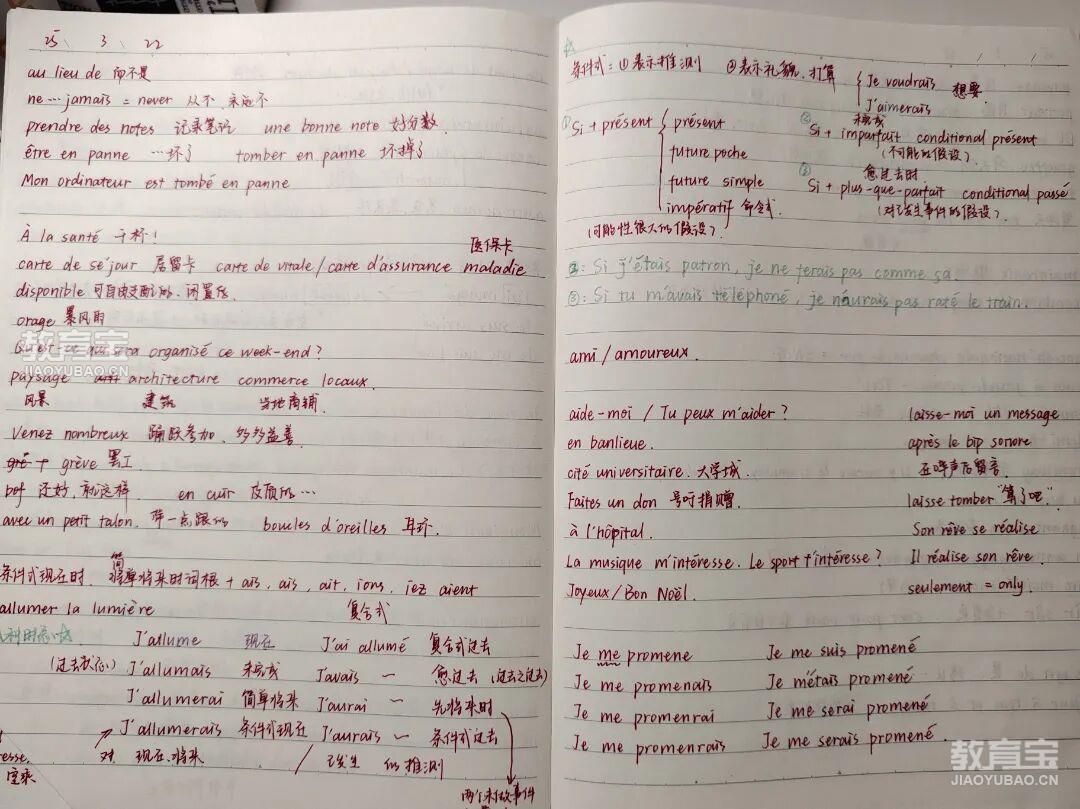 25、3、22
au lieu de 而不是
ne…jamais = never 从不、永远不
prendre des notes 记录笔记 une bonne note 好分数
être en panne …坏了 tomber en panne 坏掉了
Mon ordinateur est tombé en panne
À la santé 干杯!
医保卡
carte de séjour 居留卡 carte de vitale / carte d'assurance maladie
disponible 可自由支配的、闲置的
orage 暴风雨
organisé ce week-end?
paysage architecture commerce locaux
风景 建筑 当地商铺
Venez nombreux 踊跃参加、多多益善
grève 罢工
bof 还好,就这样 en cuir 皮质的…
avec un petit talon, 带一点跟的 boucles d'oreilles 耳环
条件式现在时. 简单将来时词根 + ais, ais, ait, ions, iez aient
allumer la lumière 复合式
J'allume 现在 J'ai allumé 复合式过去
(过去状态) J'allumais 未完成 J'avais ~ 愈过去 (过去之过去)
J'allumerai 简单将来 J'aurai ~ 先将来时
J'allumerais 条件式现在 J'aurais ~ 条件式过去
对 现在、将来 / 已发生 的推测
两个未做事件
条件式: ①表示推测 ②表示礼貌、打算 Je voudrais 想要
J'aimerais
① Si + présent présent
future poche
future simple
impératif 命令式
(可能性很大的假设)
② 未完成
Si + imparfait conditional présent
(不可能的假设)
③ 愈过去时
Si + plus-que-parfait conditional passé
(对已发生事件的假设)
②: Si j'étais patron, je ne ferais pas comme ça
③: Si tu m'avais téléphoné, je n'aurais pas raté le train.
ami / amoureux.
aide-moi / Tu peux m'aider?
en banlieue.
cité universitaire. 大学城.
Faites un don 号召捐赠.
à l'hôpital.
La musique m'intéresse. Le sport t'intéresse?
Joyeux/Bon Noël.
laisse-moi un message
après le bip sonore
在哔声后留言
laisse tomber "算了吧".
Son rêve se réalise
Il réalise son rêve.
seulement = only.
Je me promene Je me suis promené
Je me promenais Je m'étais promené
Je me promenrai Je me serai promené
Je me promenrais Je me serais promené.
教育宝
JIAOYUBAO.CN
教育宝
JIAOYUBAO.CN